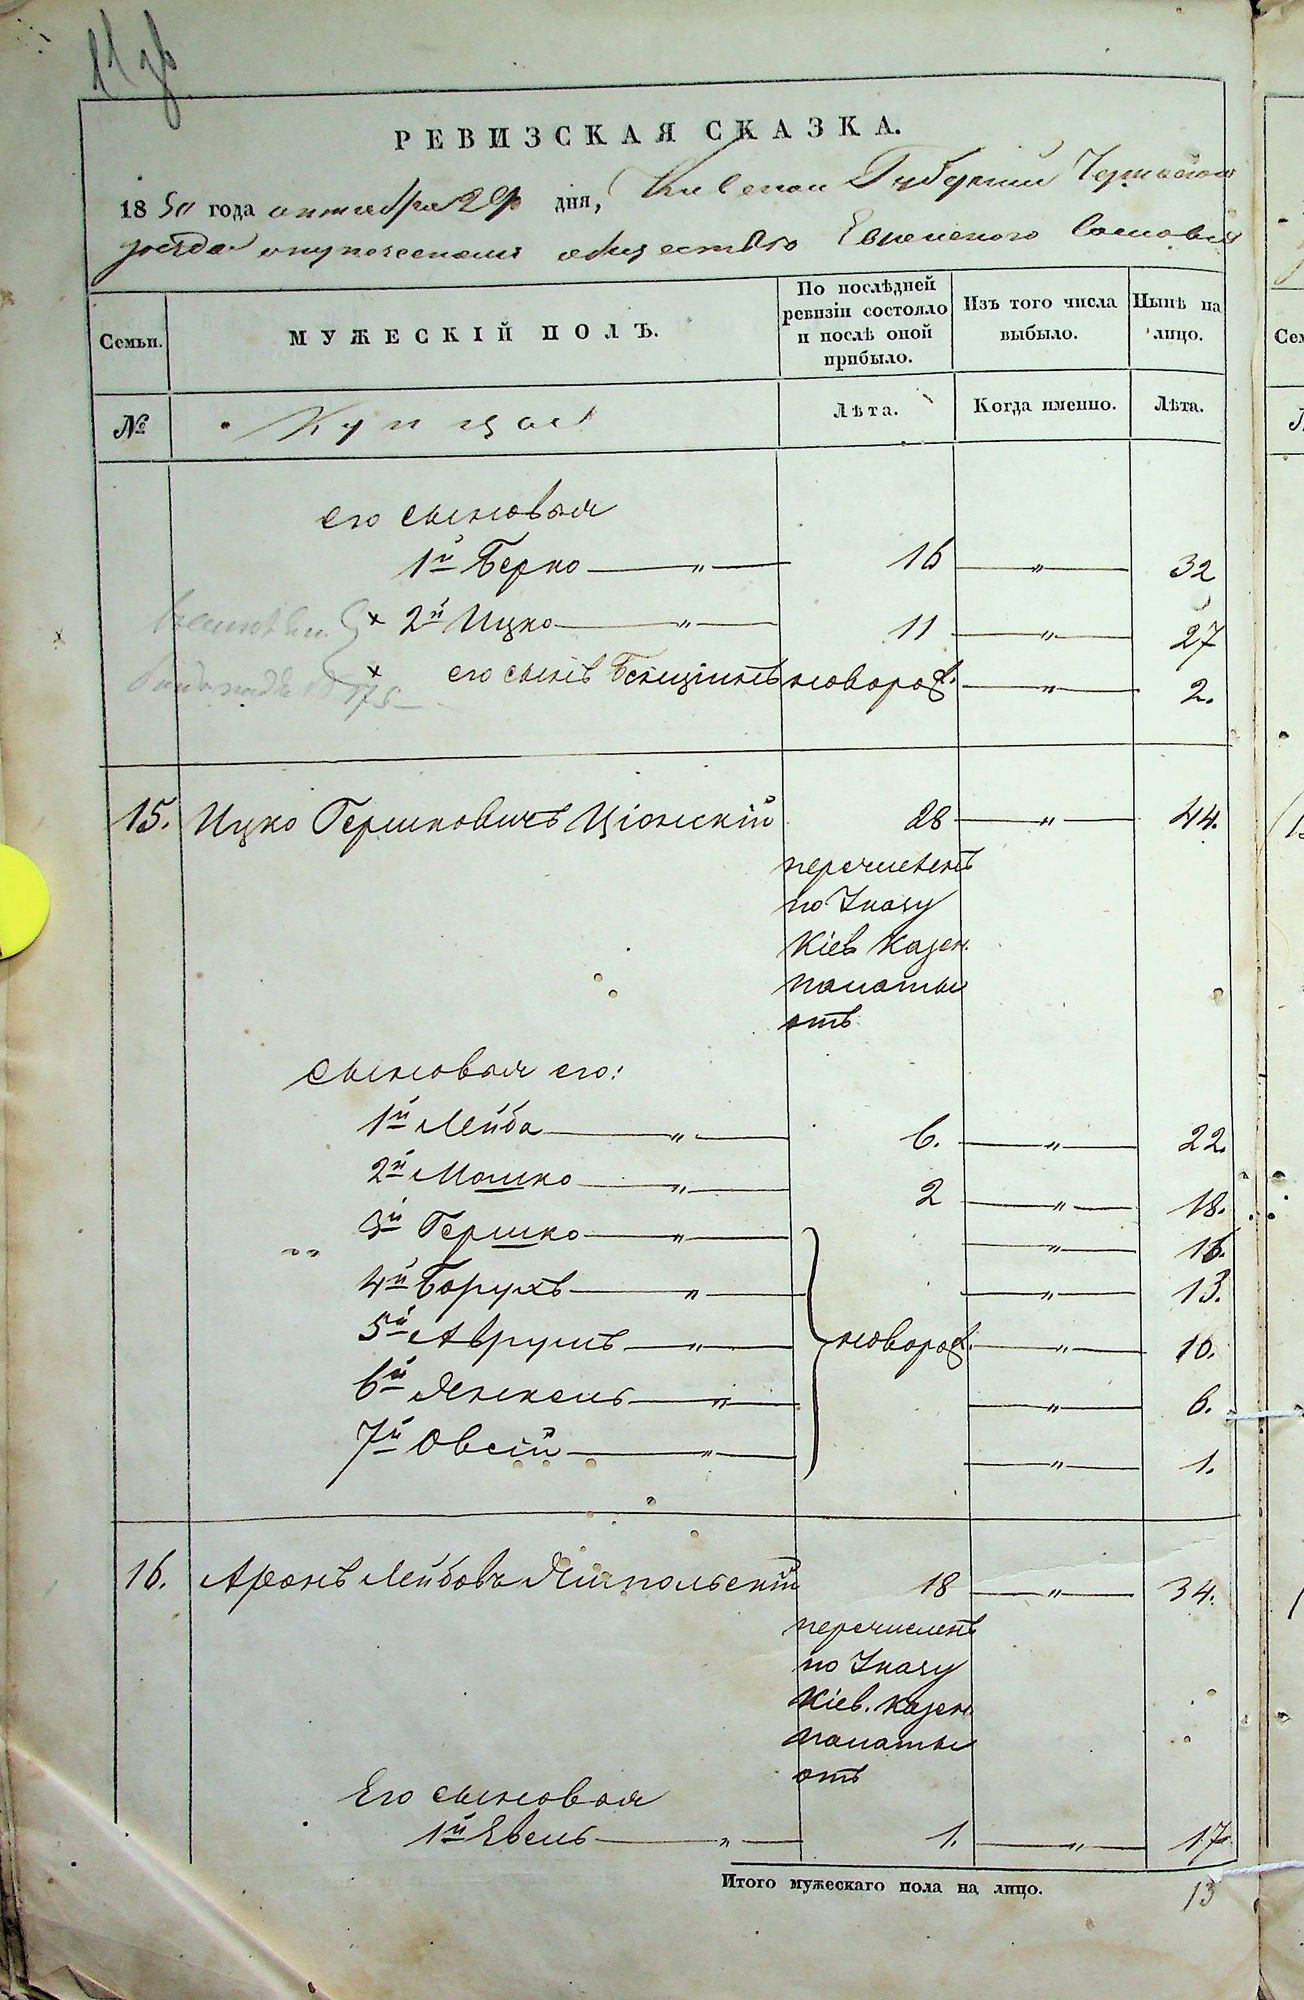 11 об
РЕВИЗСКАЯ СКАЗКА.
1850 года октября 29 дня, Киевской Губернии Черкаскаго
уезда о купеческомъ обществе Еврейского Сословія
Семьи. МУЖЕСКІЙ ПОЛЪ. По послѣдней ревизіи состояло и послѣ оной прибыло. Изъ того числа выбыло. Нынѣ на лицо.
№ Купцы Лѣта. Когда именно. Лѣта.
его сыновья
1й Берко — " — 16 — " — 32
× 2й Ицко — " — 11 — " — 27
× его сынъ Бенціинъ новорож. — " — 2.
1875
15. Ицко Гершковичъ Ціонскій 28 — " — 44.
перечисленъ
по Указу
Кіев Казен.
палаты
отъ
Сыновья его:
1й Лейба — " — 6. — " — 22.
2й Мошко — " — 2 — " — 18.
3й Гершко — " — — " — 16.
4й Борухъ — " — — " — 13.
5й Аврумъ — " — новорож. — " — 10.
6й Янкель — " — — " — 6.
7й Овсій — " — — " — 1.
16. Аронъ Лейбовъ Ямпольскій 18 — " — 34.
перечисленъ
по Указу
Кіев. казен.
палаты
отъ
Его сыновья
1й Евель — " — 1. — " — 17
Итого мужескаго пола на лицо. 13